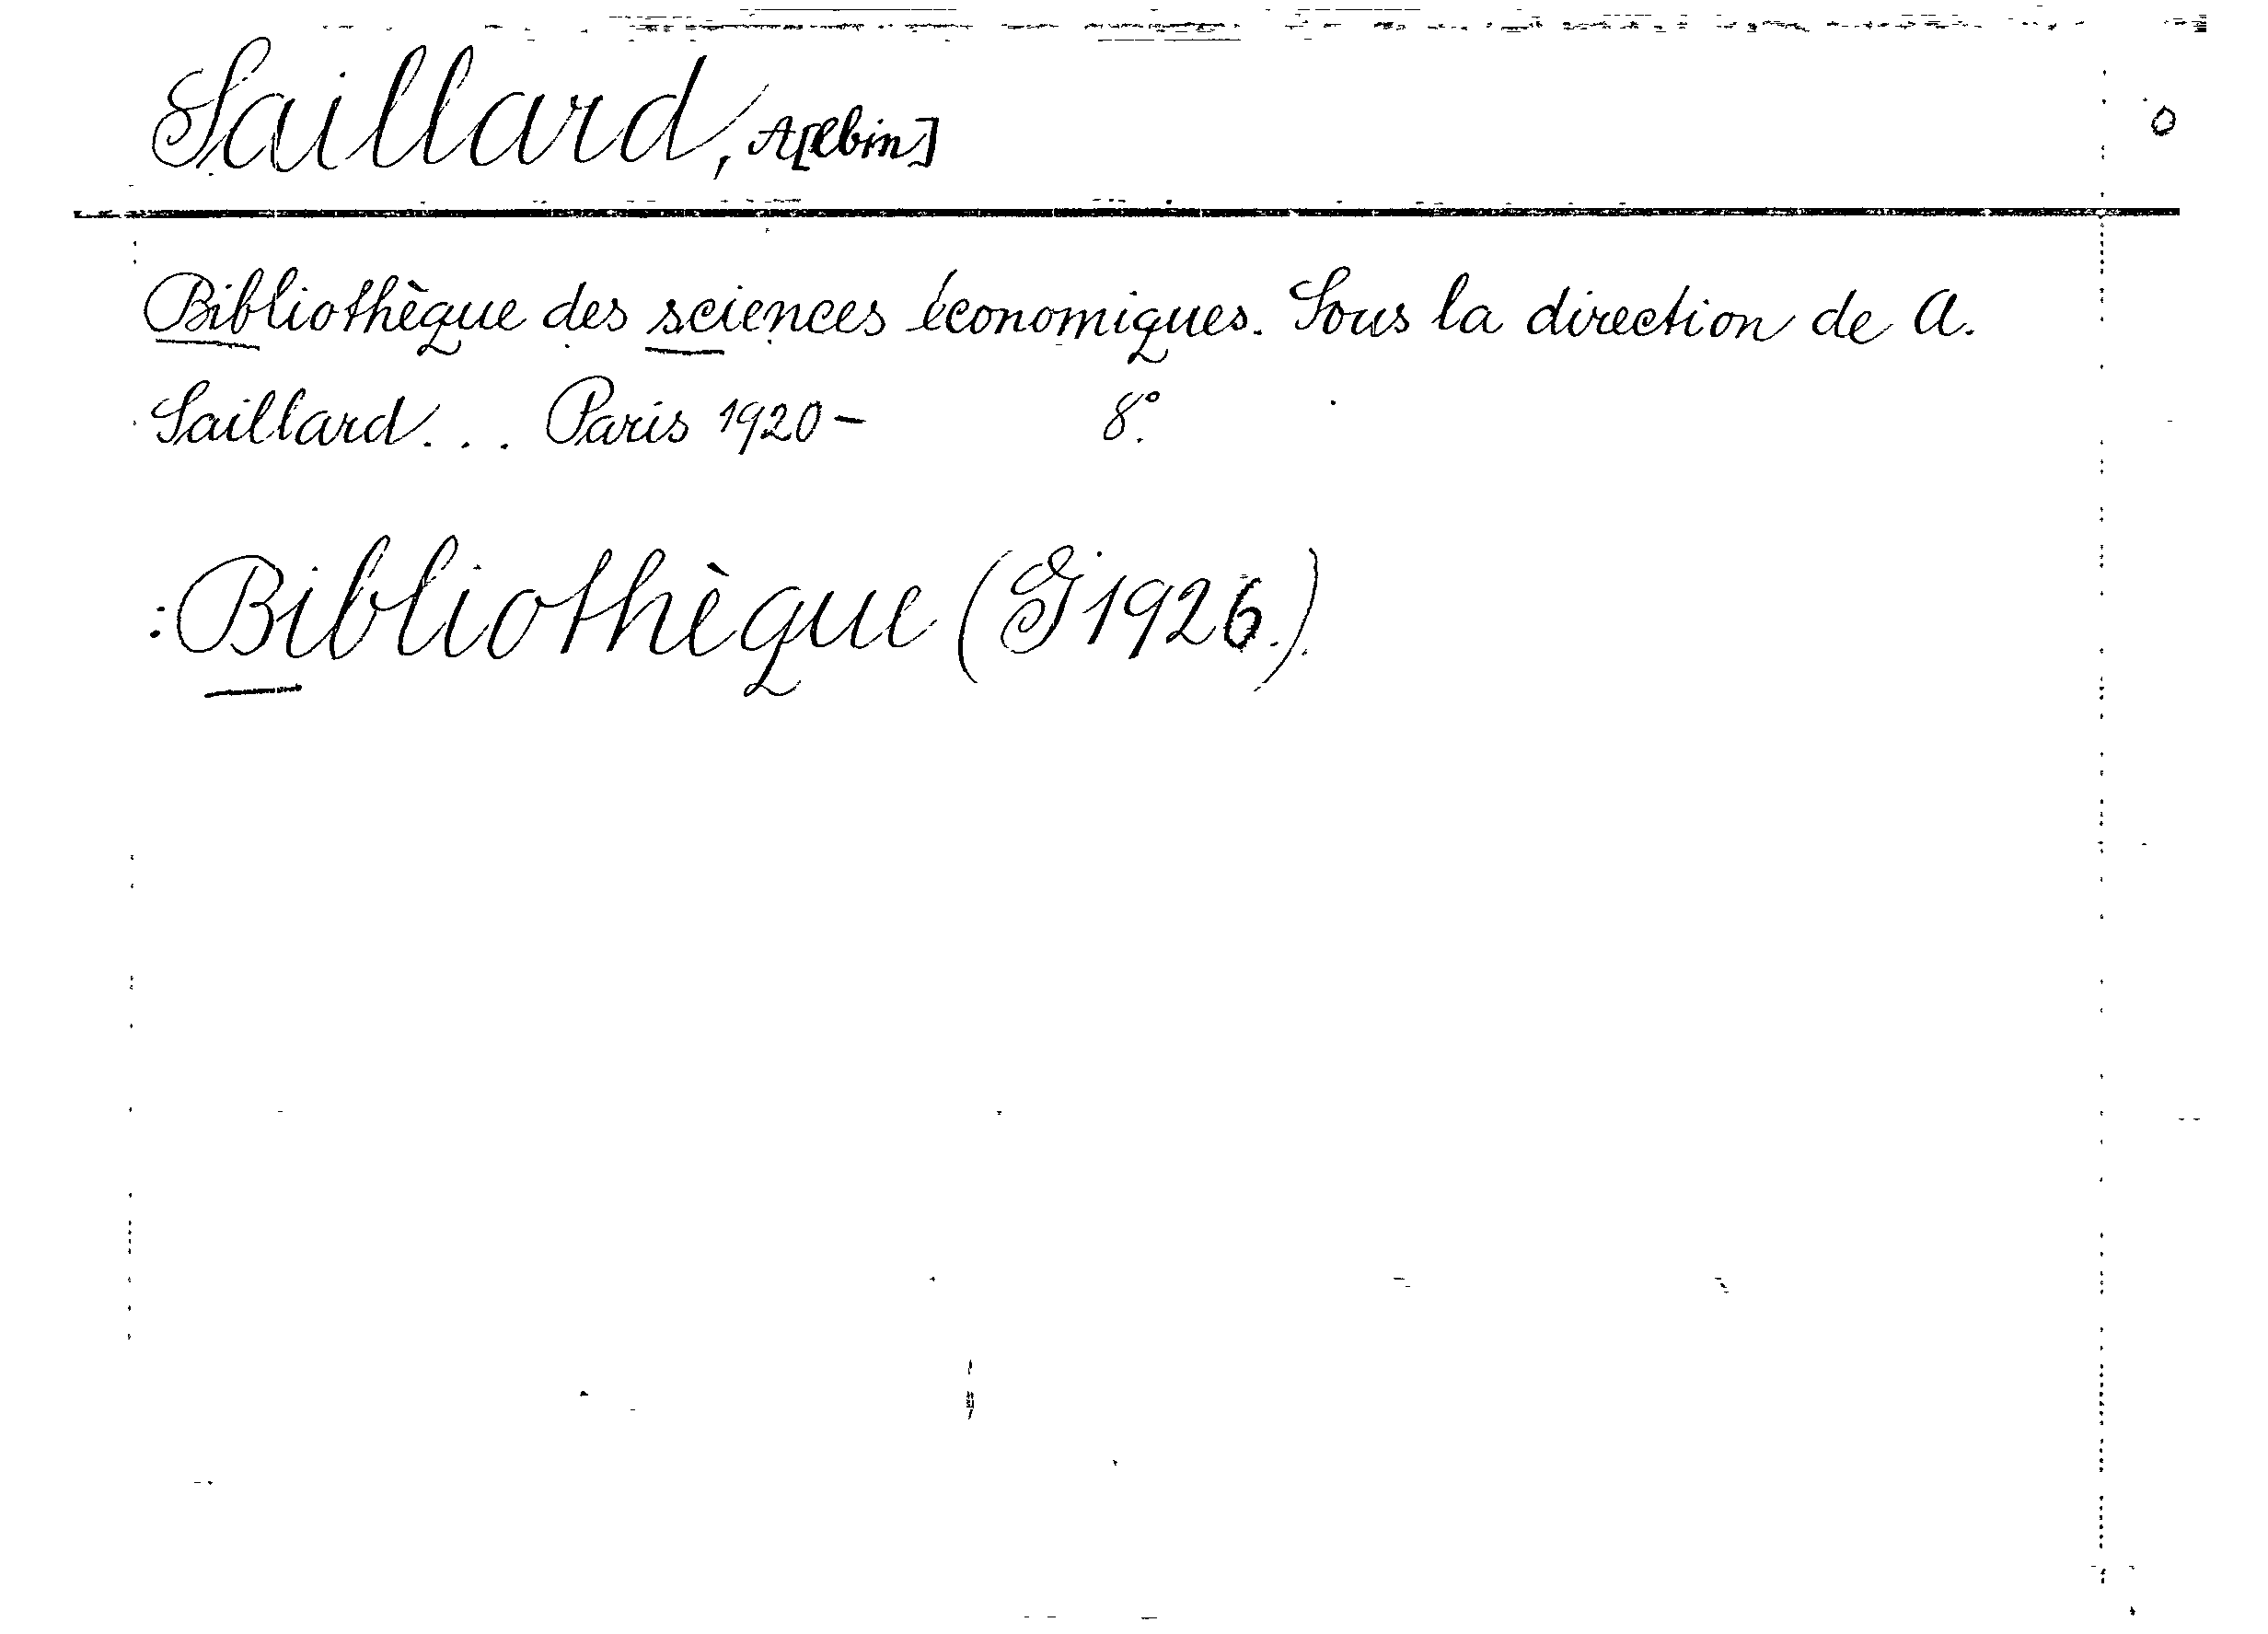 Saillard, A[lbin]
o
Bibliothèque des sciences économiques. Sous la direction de A.
Saillard... Paris 1920- 8°.
:Bibliothèque (G 1926.).